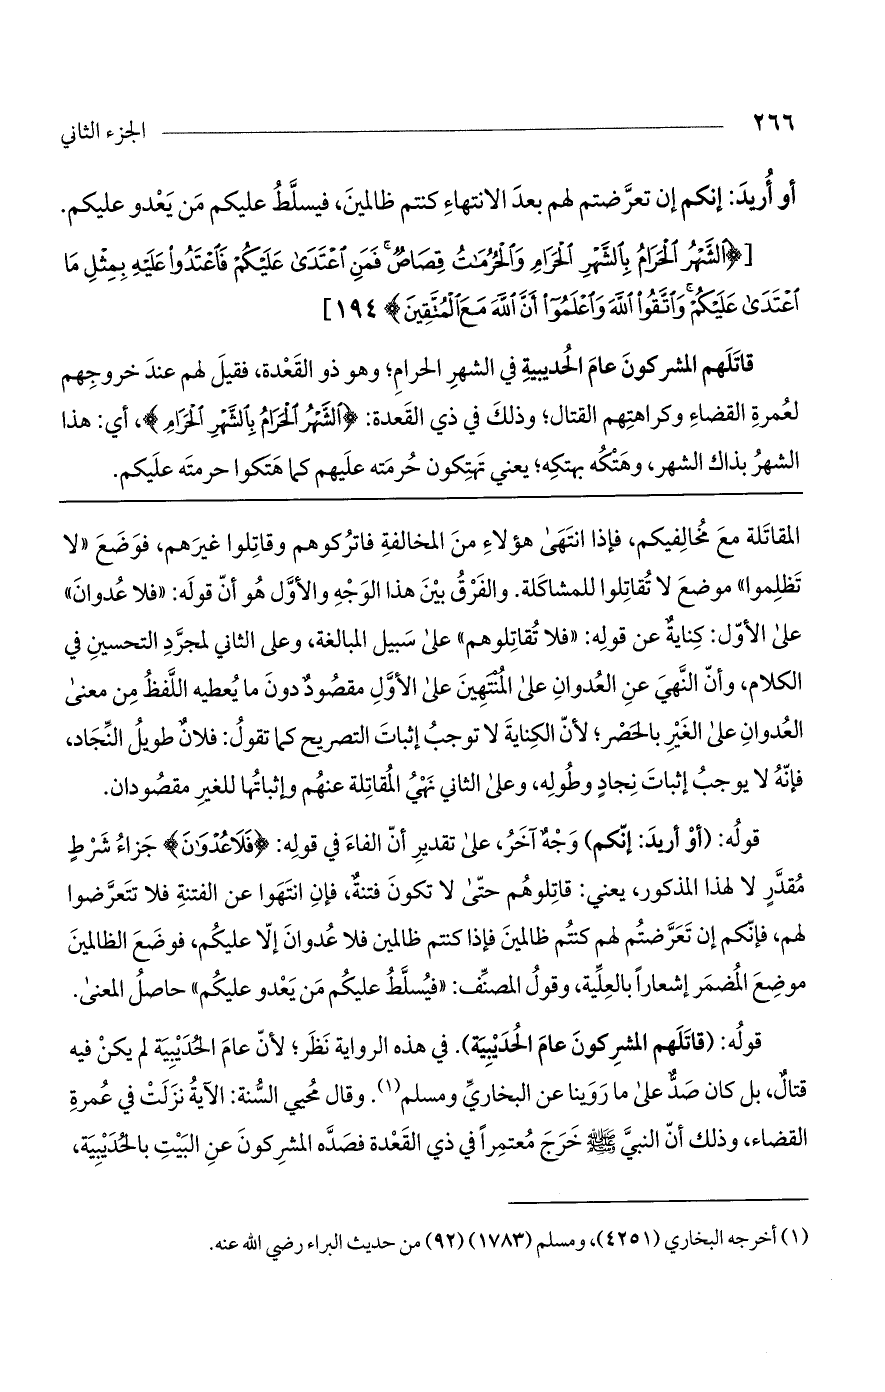 ٢٦٦ الجزء الثاني
أو أُريدَ: إنكم إن تعرَّضتم لهم بعدَ الانتهاءِ كنتم ظالمينَ، فيسلَّطُ عليكم مَن يَعْدو عليكم.
[﴿ٱلشَّهْرُ ٱلْحَرَامُ بِٱلشَّهْرِ ٱلْحَرَامِ وَٱلْحُرُمَـٰتُ قِصَاصٌ ۚ فَمَنِ ٱعْتَدَىٰ عَلَيْكُمْ فَٱعْتَدُوا۟ عَلَيْهِ بِمِثْلِ مَا
ٱعْتَدَىٰ عَلَيْكُمْ ۚ وَٱتَّقُوا۟ ٱللَّهَ وَٱعْلَمُوٓا۟ أَنَّ ٱللَّهَ مَعَ ٱلْمُتَّقِينَ﴾ ١٩٤]
قاتَلَهم المشركونَ عامَ الحُديبيةِ في الشهرِ الحرامِ؛ وهو ذو القَعْدة، فقيلَ لهم عندَ خروجِهم
لعُمرةِ القضاءِ وكراهتِهم القتال؛ وذلكَ في ذي القَعدة: ﴿ٱلشَّهْرُ ٱلْحَرَامُ بِٱلشَّهْرِ ٱلْحَرَامِ﴾، أي: هذا
الشهرُ بذاك الشهر، وهَتْكُه بهتكِه؛ يعني تَهتِكون حُرمَته عليهم كما هَتَكوا حرمتَه عليكم.
المقاتَلة معَ مُخالِفيكم، فإذا انتَهَىٰ هؤلاءِ منَ المخالفةِ فاترُكوهم وقاتِلوا غيرَهم، فوَضَعَ «لا
تَظلِموا» موضعَ لا تُقاتِلوا للمشاكَلة. والفَرْقُ بيْنَ هذا الوَجْهِ والأوَّل هُو أنّ قولَه: «فلا عُدوانَ»
علىٰ الأوّل: كِنايةٌ عن قولِه: «فلا تُقاتلوهم» علىٰ سَبيل المبالغة، وعلى الثاني لمجرَّدِ التحسينِ في
الكلام، وأنّ النَّهيَ عنِ العُدوانِ علىٰ المُنْتَهِينَ علىٰ الأوَّلِ مقصُودٌ دونَ ما يُعطيه اللَّفظُ مِن معنىٰ
العُدوانِ علىٰ الغَيْرِ بالحَصْر؛ لأنّ الكِنايةَ لا توجبُ إثباتَ التصريح كما تقولُ: فلانٌ طويلُ النِّجاد،
فإنّهُ لا يوجبُ إثباتَ نِجادٍ وطُولِه، وعلىٰ الثاني نَهْيُ المُقاتلة عنهُم وإثباتُها للغيرِ مقصُودان.
قولُه: (أوْ أريدَ: إنّكم) وَجْهٌ آخَرُ، علىٰ تقديرِ أنّ الفاءَ في قولِه: ﴿فَلَاعُدْوَٰنَ﴾ جَزاءُ شَرْطٍ
مُقدَّرٍ لا لهذا المذكور، يعني: قاتِلوهُم حتّىٰ لا تكونَ فتنةٌ، فإنِ انتَهَوا عن الفتنةِ فلا تتَعرَّضوا
لهم، فإنّكم إن تَعَرَّضتُم لهم كنتُم ظالمينَ فإذا كنتم ظالمين فلا عُدوانَ إلّا عليكُم، فوضَعَ الظالمينَ
موضِعَ المُضمَر إشعاراً بالعِلِّية، وقولُ المصنِّف: «فيُسلَّطُ عليكُم مَن يَعْدو عليكُم» حاصلُ المعنىٰ.
قولُه: (قاتَلَهم المشرِكونَ عامَ الحُدَيْبِيَة). في هذه الرواية نَظَر؛ لأنّ عامَ الحُدَيْبِيَة لم يكنْ فيه
قتالٌ، بل كان صَدٌّ علىٰ ما رَوَينا عن البخاريِّ ومسلم(١). وقال مُحيي السُّنة: الآيةُ نزلَتْ في عُمرةِ
القضاء، وذلك أنّ النبيَّ ﷺ خَرَجَ مُعتمِراً في ذي القَعْدة فصَدَّه المشركونَ عنِ البَيْتِ بالحُدَيْبِيَة،
(١) أخرجه البخاري (٤٢٥١)، ومسلم (١٧٨٣) (٩٢) من حديث البراء رضي الله عنه.